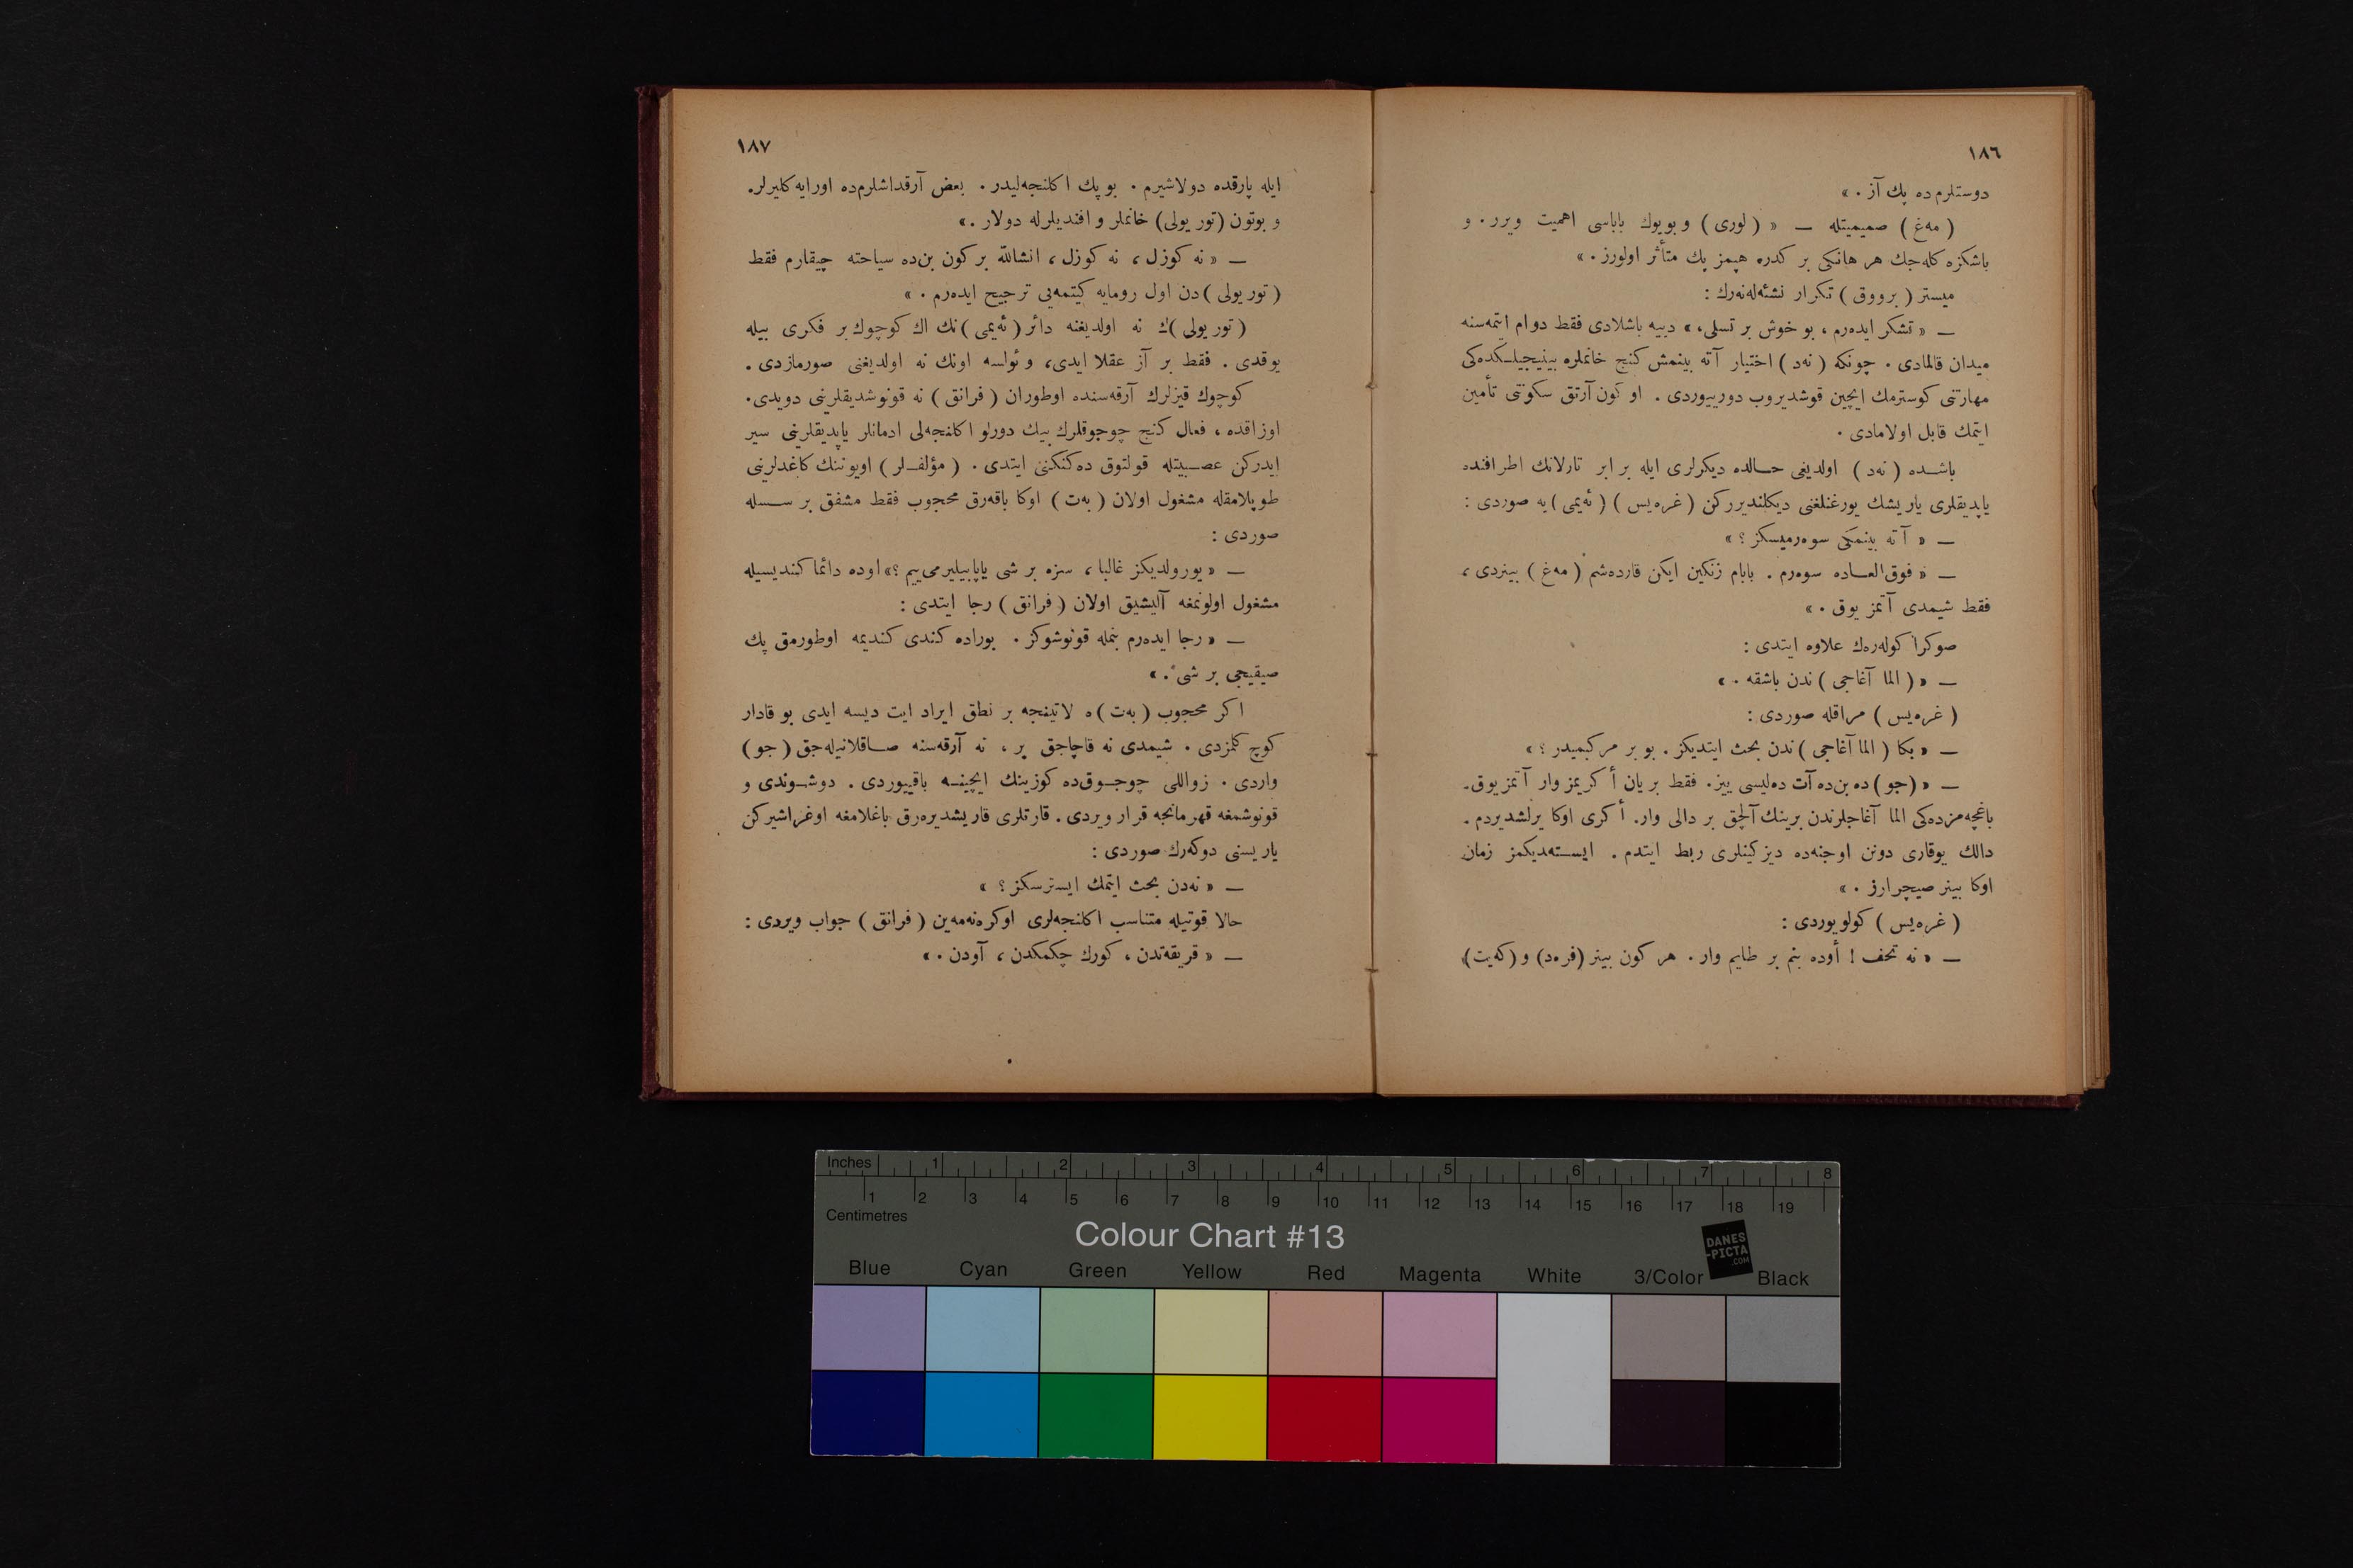 ١٨٦
دوستلرم ده پك آز . »
( مه‌غ ) صميميتله — « ( لوری ) و بویوك باباسی اهمیت ویرر . و
باشكزه كله‌جك هر هانكی بر كدره هپمز پك متأثر اولورز . »
میستر ( برووق ) تكرار نشئه‌له‌نه‌رك :
— « تشكر ایده‌رم ، بو خوش بر تسلی، » دییه باشلادی فقط دوام ایتمه‌سنه
میدان قالمادی . چونكه ( نه‌د ) اختیار آته بینمش كنج خانملره بینیجیلكده‌كی
مهارتنی كوسترمك ایچین قوشدیروب دورییوردی . او كون آرتق سكونتی تأمین
ایتمك قابل اولامادی .
باشده ( نه‌د ) اولدیغی حالده دیكرلری ایله برابر تارلانك اطرافنده
یاپدیقلری یاریشك یورغنلغنی دیكلندیرركن ( غره‌یس ) ( ئه‌یمی ) یه صوردی :
— « آته بینمكی سوه‌رمیسكز ؟ »
— « فوق‌العاده سوه‌رم . بابام زنكین ایكن قارده‌شم ( مه‌غ ) بینردی ،
فقط شیمدی آتمز یوق . »
صوكرا كوله‌رەك علاوه ایتدی :
— « ( الما آغاجی ) ندن باشقه . »
( غره‌یس ) مراقله صوردی :
— « بكا ( الما آغاجی ) ندن بحث ایتدیكز . بو بر مركبمیدر ؟ »
— « (جو) ده بن‌ده آت ده‌لیسی ییز . فقط بر یان أكریمز وار آتمز یوق .
باغچه‌مزده‌كی الما آغاجلرندن برینك آلچق بر دالی وار . أكری اوكا یرلشدیردم .
دالك یوقاری دونن اوجنه‌ده دیزكینلری ربط ایتدم . ایسته‌دیكمز زمان
اوكا بینر صیچرارز . »
( غره‌یس ) كولویوردی :
— « نه تحف ! أوده بنم بر طایم وار . هر كون بینر (فره‌د) و (كه‌یت)
١٨٧
ایله پارقده دولاشیرم . بو پك اكلنجه‌لیدر . بعض آرقداشلرم‌ده اورایه كلیرلر .
و بوتون (تور یولی) خانملر و افندیلرله دولار . »
— « نه كوزل ، نه كوزل ، انشاالله بر كون بن‌ده سیاحته چیقارم فقط
( تور یولی ) دن اول رومایه كیتمه‌یی ترجیح ایده‌رم . »
( تور یولی ) ك نه اولدیغنه دائر ( ئه‌یمی ) نك اك كوچوك بر فكری بیله
یوقدی . فقط بر آز عقللا ایدی، و ئولسه اونك نه اولدیغنی صورمازدی .
كوچوك قیزلرك آرقه‌سنده اوطوران ( فرانق ) نه قونوشدیقلرینی دویدی .
اوزاقده ، فعال كنج چوجوقلرك بیك دورلو اكلنجه‌لی ادمانلر یاپدیقلرینی سیر
ایدركن عصبیتله قولتوق ده‌كنكنی ایتدی . ( مؤلفلر ) اویوننك كاغدلرینی
طوپلامقله مشغول اولان ( به‌ت ) اوكا باقه‌رق محجوب فقط مشفق بر سسله
صوردی :
— « یورولدیكز غالبا ، سزه بر شی یاپابیلیرمی‌ییم ؟ » اوده دائما كندیسیله
مشغول اولونمغه آلیشیق اولان ( فرانق ) رجا ایتدی :
— « رجا ایده‌رم بنمله قونوشوكز . بوراده كندی كندیمه اوطورمق پك
صیقیجی بر شی . »
اكر محجوب ( به‌ت ) ه لاتینجه بر نطق ایراد ایت دیسه ایدی بو قادار
كوچ كلمزدی . شیمدی نه قاچاجق یر ، نه آرقه‌سنه صاقلانیله‌جق ( جو )
واردی . زواللی چوجوق‌ده كوزینك ایچینه باقییوردی . دوشوندی و
قونوشمغه قهرمانجه قرار ویردی . قارتلری قاریشدیره‌رق باغلامغه اوغراشیركن
یاریسنی دوكه‌رك صوردی :
— « نه‌دن بحث ایتمك ایسترسكز ؟ »
حالا قوتیله متناسب اكلنجه‌لری اوكره‌نه‌مه‌ین ( فرانق ) جواب ویردی :
— « قریقه‌تدن ، كورك چكمكدن ، آودن . »
Inches 1 2 3 4 5 6 7 8
1 2 3 4 5 6 7 8 9 10 11 12 13 14 15 16 17 18 19
Centimetres
Colour Chart #13
DANES
-PICTA
.COM
Blue Cyan Green Yellow Red Magenta White 3/Color Black